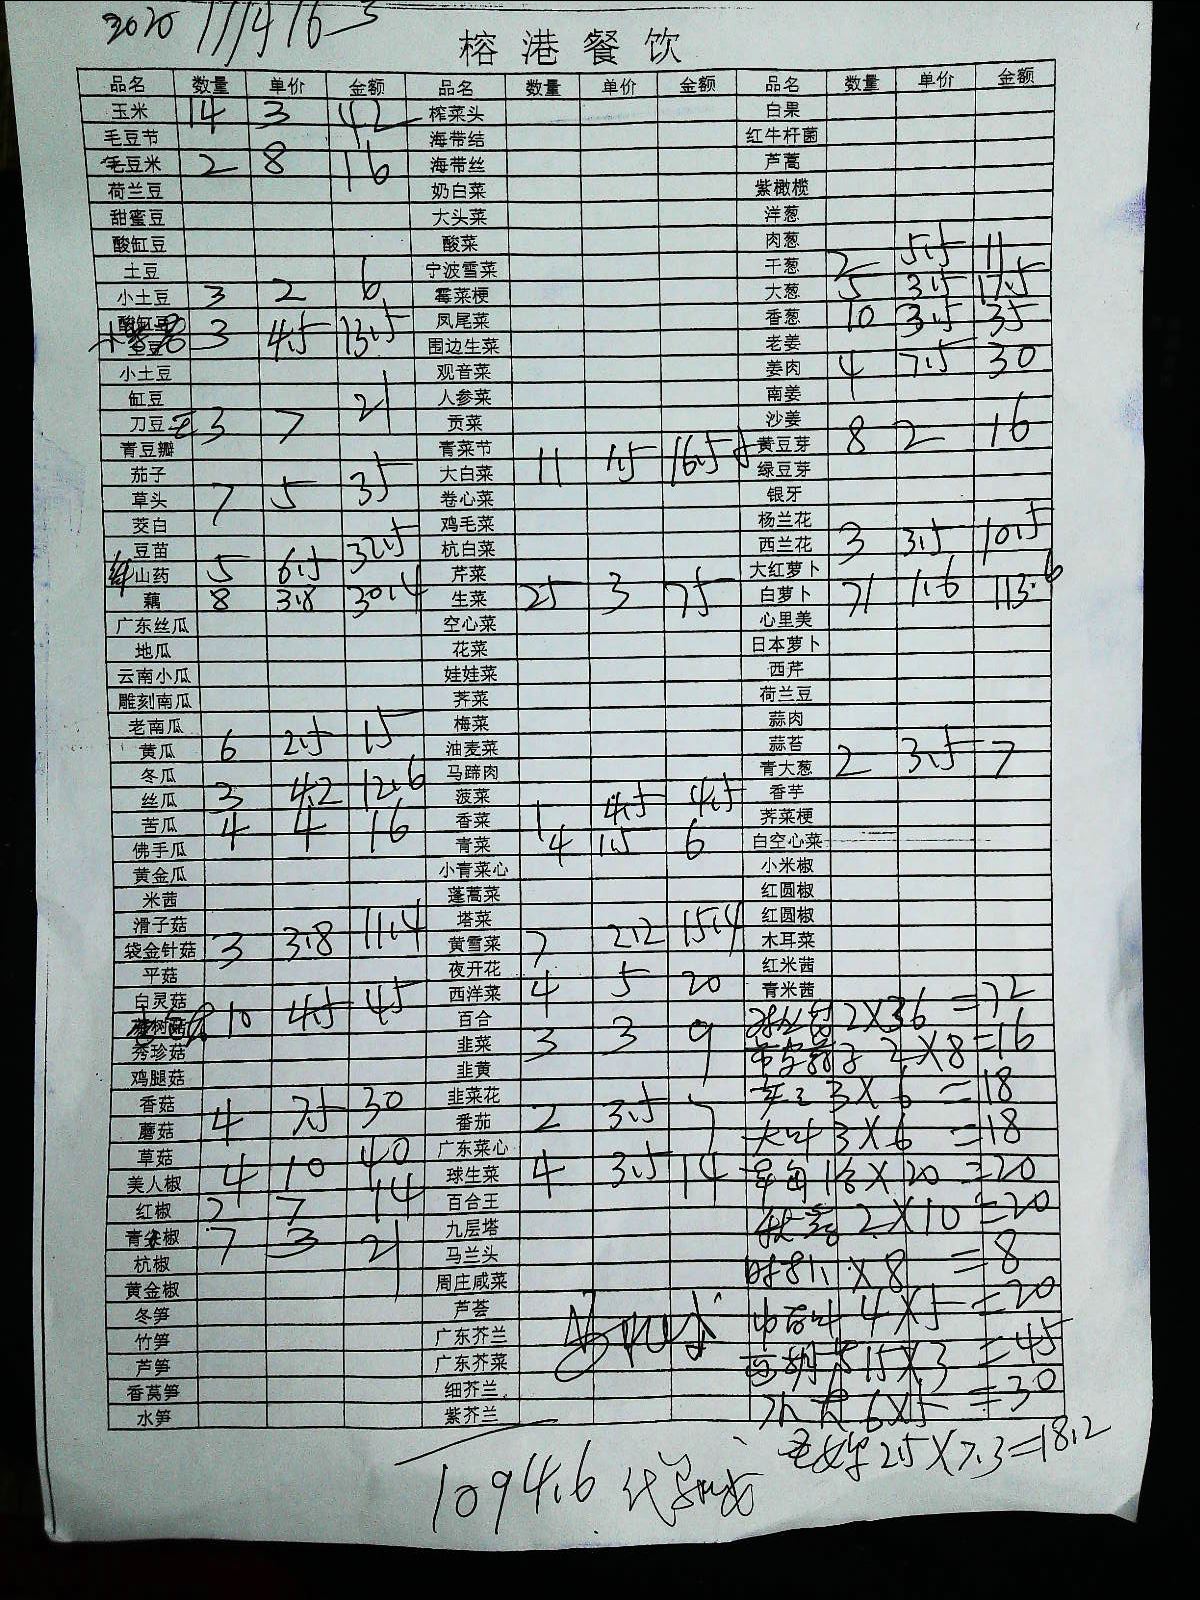 榕港餐饮
品名 数量 单价 金额 品名 数量 单价 金额 品名 数量 单价 金额
玉米 14 3 42 榨菜头 白果
毛豆节 海带结 红牛杆菌
毛豆米 2 8 16 海带丝 芦蒿
荷兰豆 奶白菜 紫橄榄
甜蜜豆 大头菜 洋葱
酸缸豆 酸菜 肉葱
土豆 宁波雪菜 干葱 2 5.5 11
小土豆 3 2 6 霉菜梗 大葱 5 3.5 17.5
酸缸豆 凤尾菜 香葱 10 3.5 35
土豆 3 4.5 13.5 围边生菜 老姜
小土豆 观音菜 姜肉 4 7.5 30
缸豆 人参菜 南姜
刀豆 3 7 21 贡菜 沙姜
青豆瓣 青菜节 黄豆芽 8 2 16
茄子 大白菜 11 1.5 16.5 绿豆芽
草头 7 5 35 卷心菜 银牙
茭白 鸡毛菜 杨兰花
豆苗 杭白菜 西兰花 3 3.5 10.5
山药 5 6.5 32.5 芹菜 大红萝卜
藕 8 3.8 30.4 生菜 25 3 75 白萝卜 71 1.6 113.6
广东丝瓜 空心菜 心里美
地瓜 花菜 日本萝卜
云南小瓜 娃娃菜 西芹
雕刻南瓜 荠菜 荷兰豆
老南瓜 梅菜 蒜肉
黄瓜 6 2.5 15 油麦菜 蒜苔
冬瓜 马蹄肉 青大葱 2 3.5 7
丝瓜 3 4.2 12.6 菠菜 香芋
苦瓜 4 4 16 香菜 1 4.5 4.5 荠菜梗
佛手瓜 青菜 4 1.5 6 白空心菜
黄金瓜 小青菜心 小米椒
米茜 蓬蒿菜 红圆椒
滑子菇 塔菜 红圆椒
袋金针菇 3 3.8 11.4 黄雪菜 7 2.2 15.4 木耳菜
平菇 夜开花 红米茜
白灵菇 西洋菜 4 5 20 青米茜
树菇 10 4.5 45 百合 2×36=72
秀珍菇 韭菜 3 3 9 2×8=16
鸡腿菇 韭黄 3×6=18
香菇 韭菜花 大叶 3×6=18
蘑菇 4 7.5 30 番茄 2 3.5 7
草菇 广东菜心 ×20=20
美人椒 4 10 40 球生菜 4 3.5 14
红椒 2 7 14 百合王 2×10=20
青尖椒 7 3 21 九层塔
杭椒 马兰头 1×8=8
黄金椒 周庄咸菜
冬笋 芦荟 4×5=20
竹笋 广东芥兰
芦笋 广东芥菜 15×3=45
香莴笋 细芥兰
水笋 紫芥兰 6×5=30
2.5×7.3=18.2
1094.6